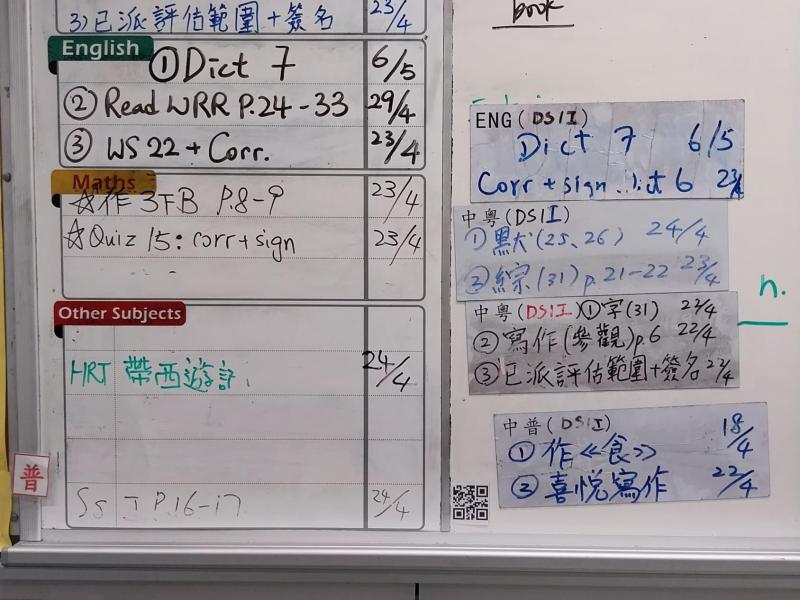 book
3)已派評估範圍+簽名 23/4
English
①Dict 7 6/5
②Read WRR P.24-33 29/4
③ WS 22 + Corr. 23/4
Maths
☆作 3下B P.8-9 23/4
☆Quiz 15: corr+sign 23/4
Other Subjects
HRT 帶西遊記 24/4
P.16-17 24/4
普
ENG (DSII)
Dict 7 6/5
Corr + sign Dict 6 23/4
中粵(DSII)
①默(25、26) 24/4
②綜(31) p.21-22 23/4
中粵(DSII)①字(31) 22/4
②寫作(參觀)p.6 22/4
③已派評估範圍+簽名 22/4
中普(DSII)
①作《食》 18/4
②喜悅寫作 22/4
n.